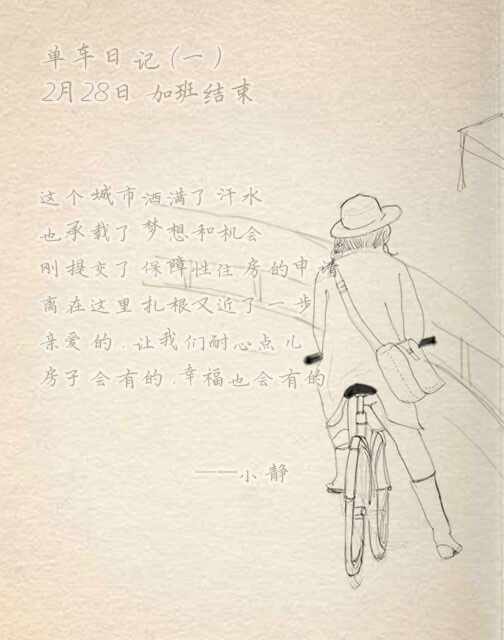 单车日记(一)
2月28日 加班结束
这个城市洒满了汗水
也承载了梦想和机会
刚提交了保障性住房的申请
离在这里扎根又近了一步
亲爱的,让我们耐心点儿
房子会有的,幸福也会有的
——小静